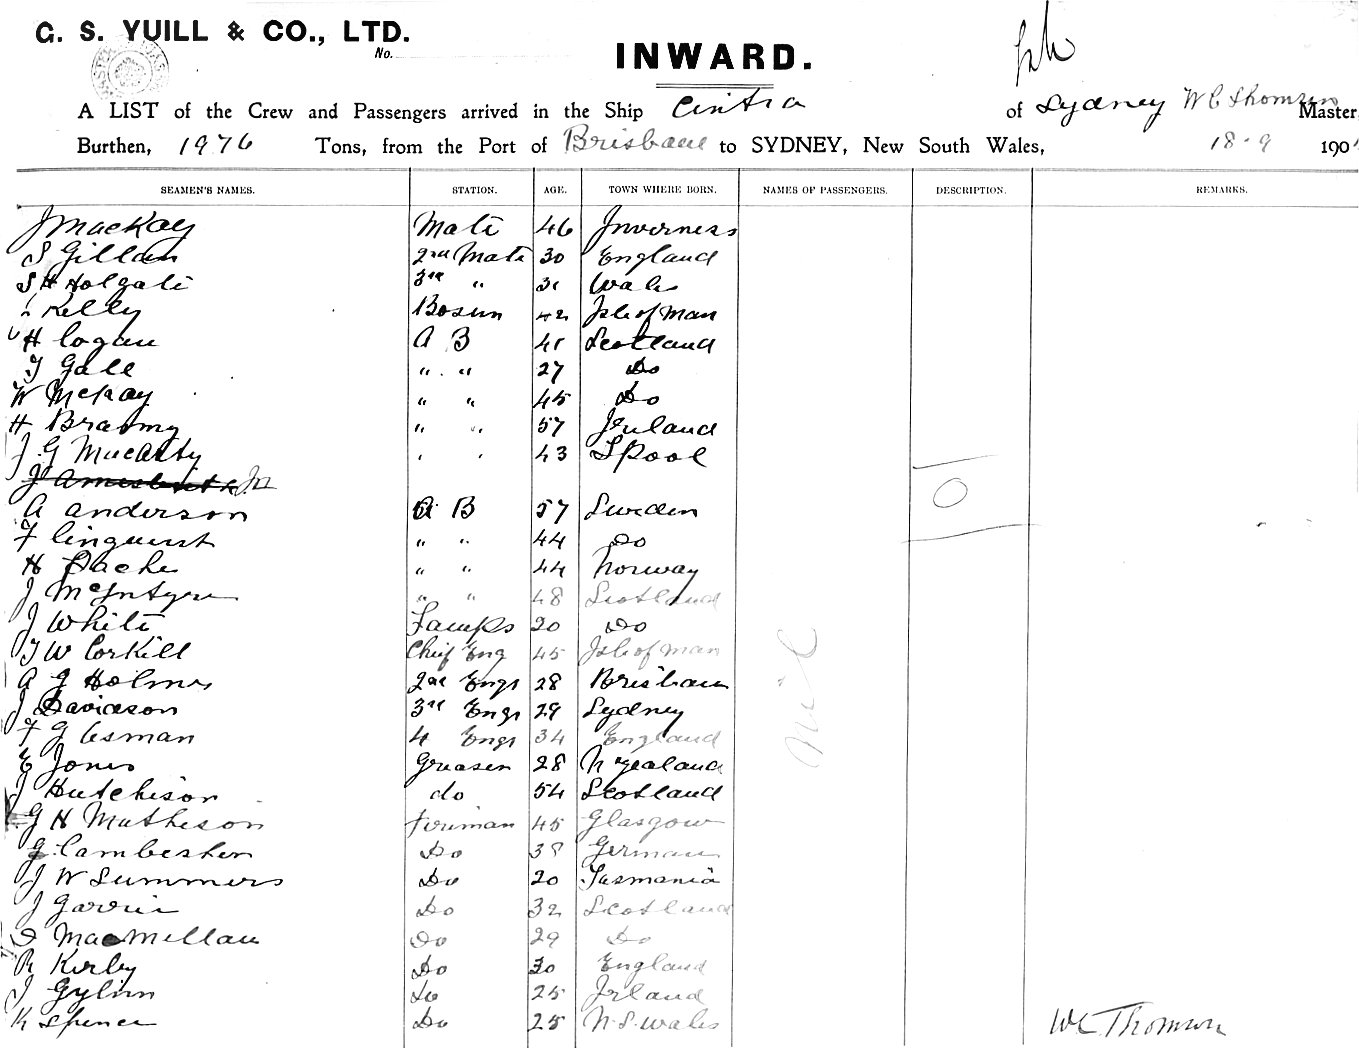 G. S. YUILL & CO., LTD.
No.
INWARD.
A LIST of the Crew and Passengers arrived in the Ship Cintra of Sydney W C Thomson Master,
Burthen, 1976 Tons, from the Port of Brisbane to SYDNEY, New South Wales, 18-9 190
SEAMEN'S NAMES. STATION. AGE. TOWN WHERE BORN. NAMES OF PASSENGERS. DESCRIPTION. REMARKS.
J MacKay Mate 46 Inverness
S Gillan 2nd Mate 30 England
S H Holgate 3rd " 31 Wales
Kelly Bosun 42 Isle of Man
H Logan A B 41 Scotland
T Gale " " 27 Do
W McKay " " 45 Do
H " " 57 Ireland
J G " " 43 LPool
A Anderson A B 57 Sweden
F Linquist " " 44 Do
H " " 44 Norway
J McIntyre " " 48 Scotland
J White Lamps 20 Do
T W Corkill Chief Eng 45 Isle of Man
A J Holmes 2nd Engr 28 Brisbane
J Davidson 3rd Engr 29 Sydney
F G Esman 4 Engr 34 England
E Jones Greaser 28 N Zealand
J Hutchison do 54 Scotland
G H Matheson Fireman 45 Glasgow
G Do 38 German
J W Summers Do 20 Tasmania
J Garvie Do 32 Scotland
D MacMillan Do 29 Do
R Kirby Do 30 England
J Do 25 Irland
K Spence Do 25 N.S. Wales
Nil
W C Thomson